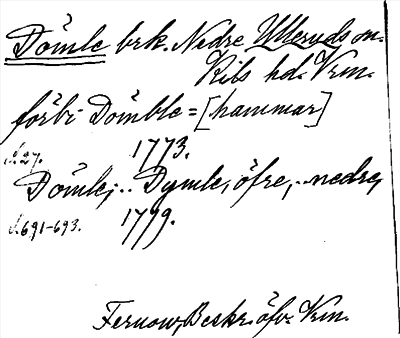 Dömle brk. Nedre Ulleruds sn.
Kils hd. Vrm.
förbi Dömble = [hammar]
s. 27. 1773.
Dömle, .. Dymle, öfre, .. nedre,
s. 691-693. 1779.
Fernow, Beskr. öfv. Vrm.